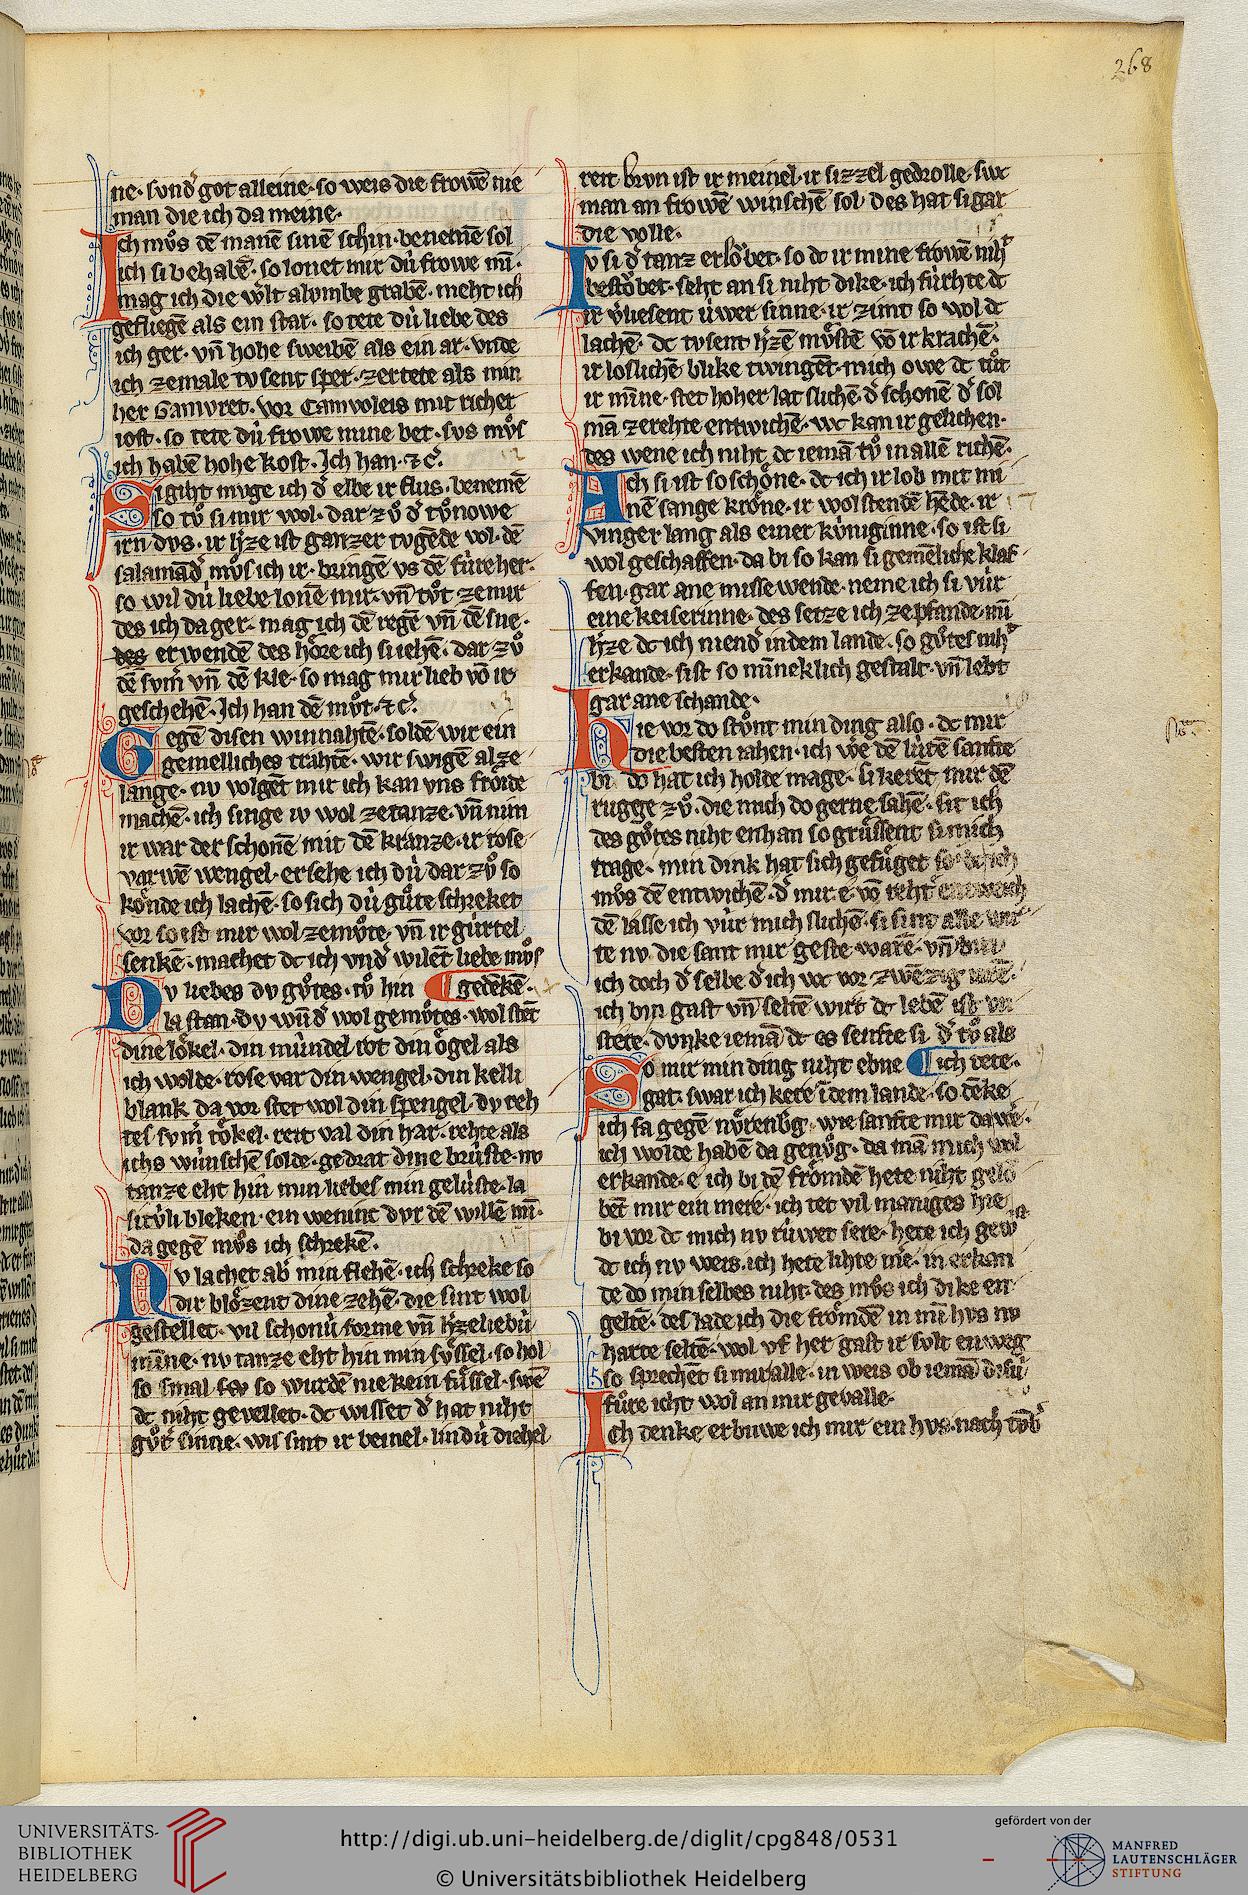 268
ne· sund᷑ got alleine· so weis die frowē nie
man die ich da meine·
Ich mvͦs dē manē sinē schin· benemē sol
ich si behabē· so lonet mir dú frowe mī·
mag ich die wˢlt alvmbe grabē· meht ich
gefliegē als ein star· so tete dú liebe des
ich ger· vn̄ hohe sweibē als ein ar· vnde
ich zemale tvsent sper· zertete als min
her Gamvret· vor Camvoleis mit richer
iost· so tete dú frowe mine bet· svs mvͦs
ich habē hohe kost· Ich han· ⁊c̓·
Si giht mvge ich d᷑ elbe ir flus· benemē
so tvͦ si mir wol· dar zvͦ d᷑ tvͦnowe
irn dvs· ir h᷑ze ist ganzer tvgēde vol· dē
salamād᷑ mvͦs ich ir· bringē vs dē fúre her·
so wil dú liebe lonē mir· vn̄ tvͦt zemir
des ich da ger· mag ich dē regē vn̄ dē sne·
des erwendē des hoͤre ich si iehē· dar zvͦ
dē svm᷑ vn̄ dē kle· so mag mir lieb vō ir
geschehē· Ich han dē mvͦt· ⁊c̓·
Gegē disen winnahtē· soldē wir ein
gemelliches trahtē· wir swigē al ze
lange· nv volgēt mir ich kan vns froͤide
machē· ich singe iv wol zetanze· vn̄ nim
ir war der schonē mit dē kranze· ir rose
varwē wengel· ersehe ich dú dar zvͦ so
koͤnde ich lachē· so sich dú guͤte schreket
vor so ist mir wol zemvͦte· vn̄ ir gúrtel
senkē· machet dc ich vnd᷑ wilēt liebe mvͦs
Dv liebes dv gvͦtes· tvͦ hin ¶ gedēkē·
la stan· dv wnd᷑ wol gemvͦtes· wol stēt
dine loͤkel· din múndel rot din oͤgel als
ich wolde· rose var din wengel· din kelli
blank da vor stet wol din spengel· dv reh
tes svm᷑ tōkel· reit val din har· rehte als
ichs wúnschē solde· gedrat dine brúste· nv
tanze eht hin min liebes min gelúste· la
sitv́li bleken· ein wenint dvr dē willē mī·
da gegē mvͦs ich schrekē·
Nv lachet ab᷑ min flehē· ich schreke so
dir bloͤzent dine zehē· die sint wol
gestellet· vil schonú forme vn̄ h᷑zeliebú
minne· nv tanze eht hin min svͤssel· so hol
so smal so wurdē nie kein fuͤssel· swē
dc niht gevellet· dc wisset d᷑ hat niht
gvͦt᷑ sinne· wis sint ir beinel· lindú diehel
reit brvn ist ir meinel· ir sizzel gedrolle· swc
man an frowē winschē sol· des hat si gar
die volle·
Iv si d᷑ tanz erloͮbet· so dc ir mine frowē niht
bestoͮbet· seht an si niht dike· ich fúrhte dc
ir v᷑liesent úwer sinne· ir zimt so wol dc
lachē· dc tvsent h᷑zē mvͤstē vō ir krachē·
ir loslichē blike twingēt mich owe dc tvͦt
ir mīne· stet hoher lat slichē· d᷑ schonē d᷑ sol
mā zerehte entwichē· wc kan ir gelichen·
des wene ich niht· dc iemā tvͦ in allē richē·
Ach si ist so schoͤne· dc ich ir lob mit mi
nē sange kroͤne· ir wol stendē hēde· ir
vinger lang als einer kúniginne· so ist si
wol geschaffen· da bi so kan si gemēliche klaf
fen· gar ane missewende· neme ich si vúr
eine keiserinne· des setze ich ze pfande· mī
h᷑ze dc ich niend᷑ in dem lande· so gvͦtes niht
erkande· sist so mīneklich gestalt· vn̄ lebt
gar ane schande·
Hie vor do stvͦnt min ding also· dc mir
die besten iahen· ich w᷑e dē lútē sanfte
bi· do hat ich holde mage· si kerēt mir dē
rugge zvͦ· die mich do gerne sahē· sit ich
des gvͦtes niht enhan so grússent si mich
trage· min dink hat sich gefuͤget so dc ich
mvͦs dē entwichē· d᷑ mir e vō reht᷑ entweich
dē lasse ich vúr mich slichē· si sint alle wir
te nv die sant mir geste warē· vn̄ bin
ich doch d᷑ selbe d᷑ ich wc vor zwēzig iarē·
ich bin gast vn̄ seltē wirt dc lebē ist vn
stete· dvnke iemā dc es senfte si d᷑ tvͦ als
So mir min ding niht ebne ¶ ich tete·
gat· swar ich kere ī dem lande· so dēke
ich sa gegē nvͤrenb᷑g· wie sanfte mir da w᷑e·
ich wolde habē da genvͦg· da mā mich wol
erkande· e ich bi dē froͤmdē hete niht gelo
bēt mir ein mere· ich tet vil maniges hie
bi vor dc mich nv rúwet sere· hete ich gewist
dc ich nv weis· ich hete lihte me· in erkan
te do min selbes niht· des mvͦs ich dike en
geltē· des lade ich die froͤmdē in mī hvs nv
harte seltē· wol vf her gast ir svlt enweg
so sprechēt si mir alle· in weis ob iemā disú
fuͦre icht wol an mir gevalle·
Ich denke erbuwe ich mir ein hvs· nach tvmb᷑
UNIVERSITÄTS-
BIBLIOTHEK
HEIDELBERG
http://digi.ub.uni-heidelberg.de/diglit/cpg848/0531
© Universitätsbibliothek Heidelberg
gefördert von der
MANFRED
LAUTENSCHLÄGER
STIFTUNG